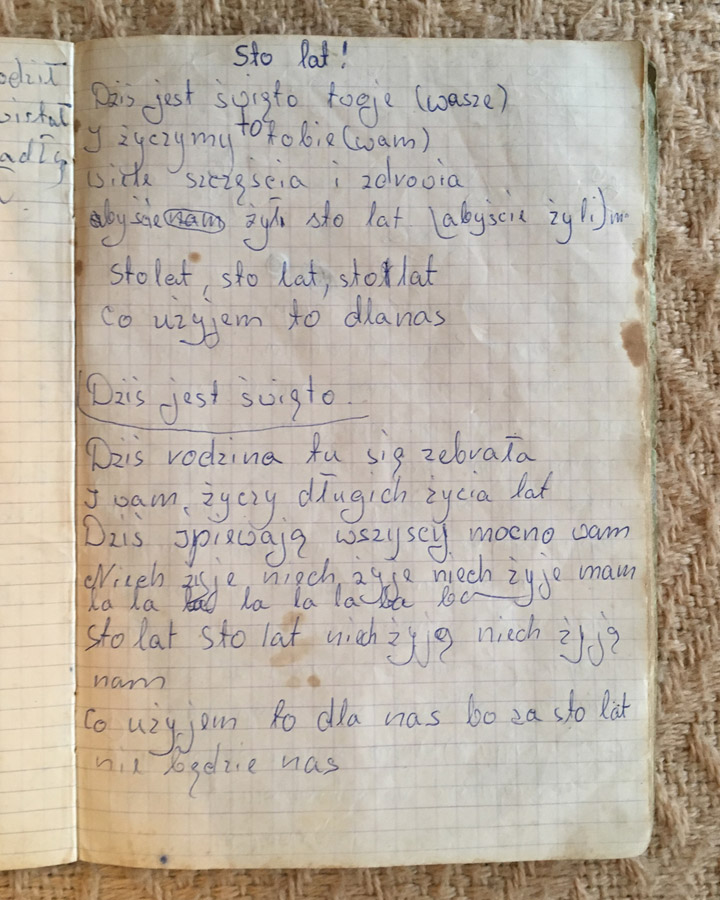 odził
wistał
adły
Sto lat!
Dziś jest święto twoje (wasze)
I życzymy to tobie (wam)
wiele szczęścia i zdrowia
abyście nam żyli sto lat (abyście żyli)
Sto lat, sto lat, sto lat
Co użyjem to dla nas
Dziś jest święto.
Dziś rodzina tu się zebrała
I wam, życzy długich życia lat
Dziś śpiewają wszyscy mocno wam
Niech żyje niech żyje niech żyje mam
la la la la la la la
Sto lat sto lat niech żyją niech żyją
nam
Co użyjem to dla nas bo za sto lat
nie będzie nas